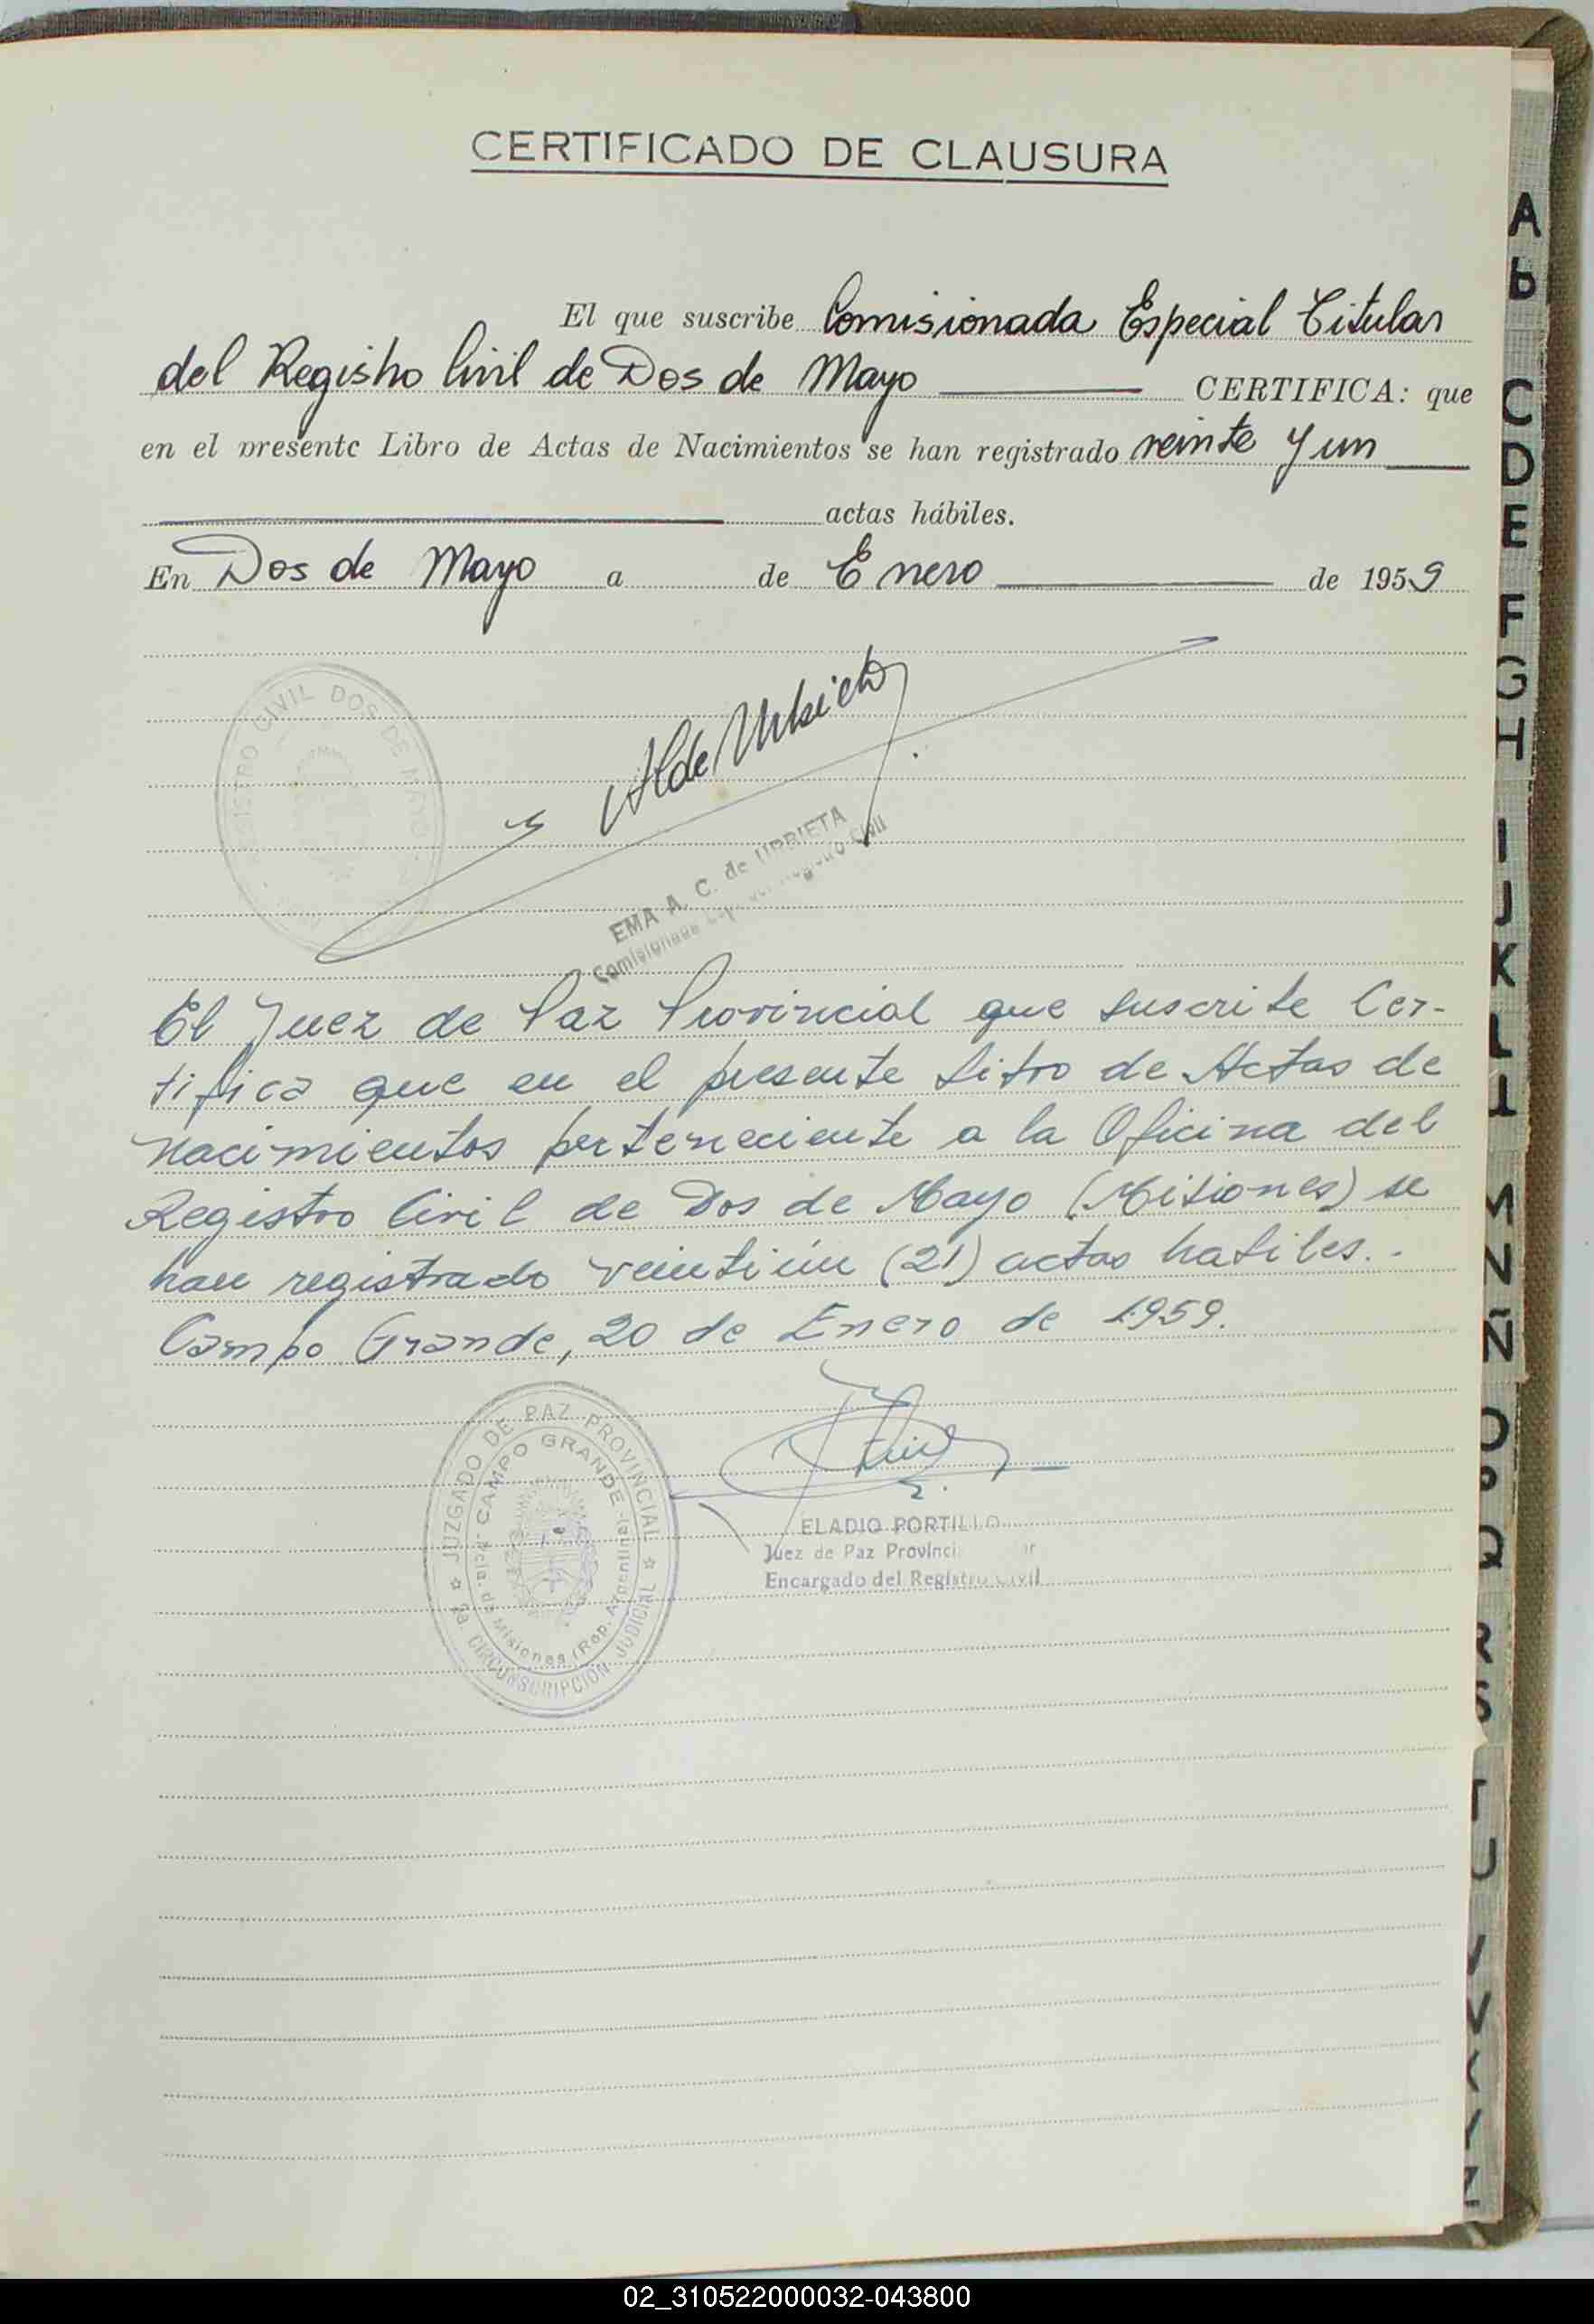 CERTIFICADO DE CLAUSURA
El que suscribe Comisionada Especial Titular
del Registro Civil de Dos de Mayo CERTIFICA: que
en el presente Libro de Actas de Nacimientos se han registrado veinte y un
actas hábiles.
En Dos de Mayo a de Enero de 1959
REGISTRO CIVIL DOS DE MAYO
A de Urbieta
EMA A. C. de URBIETA
Comisionada Registro Civil
El Juez de Paz Provincial que suscribe Cer-
tifica que en el presente Libro de Actas de
nacimientos perteneciente a la Oficina del
Registro Civil de Dos de Mayo (Misiones) se
han registrado veintiún (21) actas habiles.-
Campo Grande, 20 de Enero de 1959.
JUZGADO DE PAZ PROVINCIAL
CAMPO GRANDE
Pcia. de Misiones (Rep. Argentina)
CIRCUNSCRIPCION JUDICIAL
ELADIO PORTILLO
Juez de Paz Provinci
Encargado del Registro Civil
A
b
C
D
E
F
G
H
I
J
K
L
M
N
Ñ
O
P
Q
R
S
T
U
V
Z
02_310522000032-043800